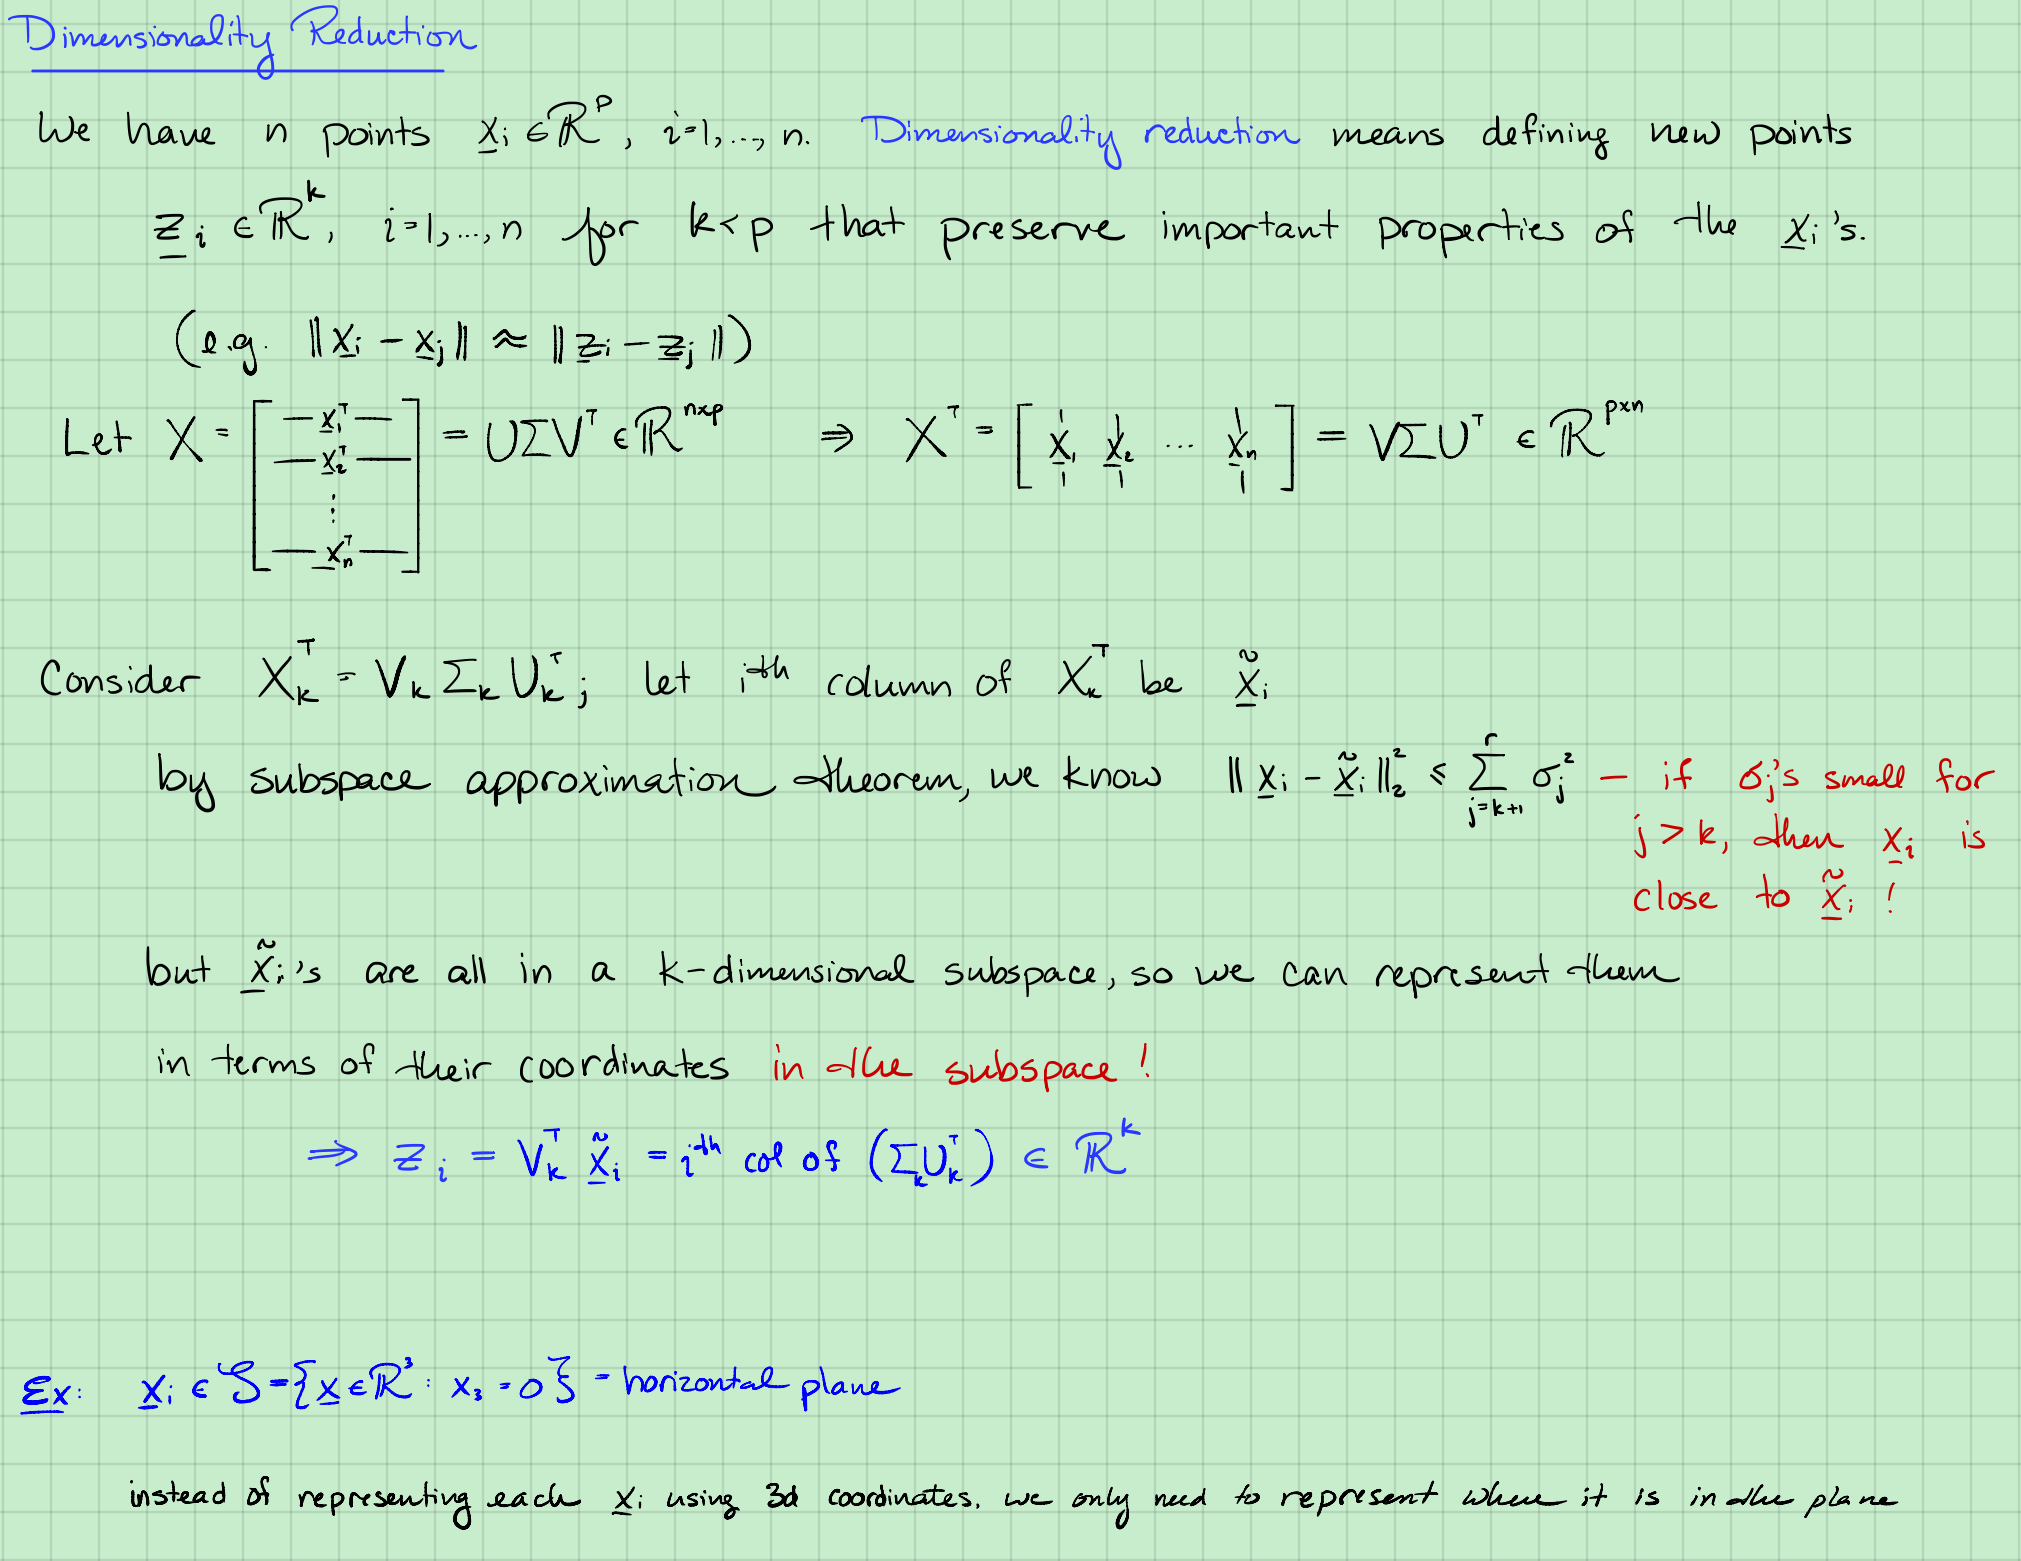 Dimensionality Reduction
We have n points x̲ᵢ ∈ ℝᵖ, i=1,..., n. Dimensionality reduction means defining new points
z̲ᵢ ∈ ℝᵏ, i=1,...,n for k<p that preserve important properties of the x̲ᵢ's.
(e.g. ‖x̲ᵢ - x̲ⱼ‖ ≈ ‖z̲ᵢ - z̲ⱼ‖)
Let X = [ — x̲₁ᵀ — ; — x̲₂ᵀ — ; ⋮ ; — x̲ₙᵀ — ] = UΣVᵀ ∈ ℝⁿˣᵖ ⇒ Xᵀ = [ x̲₁ x̲₂ ... x̲ₙ ] = VΣUᵀ ∈ ℝᵖˣⁿ
Consider Xₖᵀ = Vₖ Σₖ Uₖᵀ; let ith column of Xₖᵀ be x̲̃ᵢ
by subspace approximation theorem, we know ‖x̲ᵢ - x̲̃ᵢ‖₂² ≤ Σ_{j=k+1}^{r} σⱼ² — if σⱼ's small for
j > k, then x̲ᵢ is
close to x̲̃ᵢ !
but x̲̃ᵢ's are all in a k-dimensional subspace, so we can represent them
in terms of their coordinates in the subspace!
⇒ zᵢ = Vₖᵀ x̲̃ᵢ = ith col of (ΣₖUₖᵀ) ∈ ℝᵏ
Ex: x̲ᵢ ∈ S = {x̲ ∈ ℝ³ : x₃ = 0} = horizontal plane
instead of representing each x̲ᵢ using 3d coordinates, we only need to represent where it is in the plane